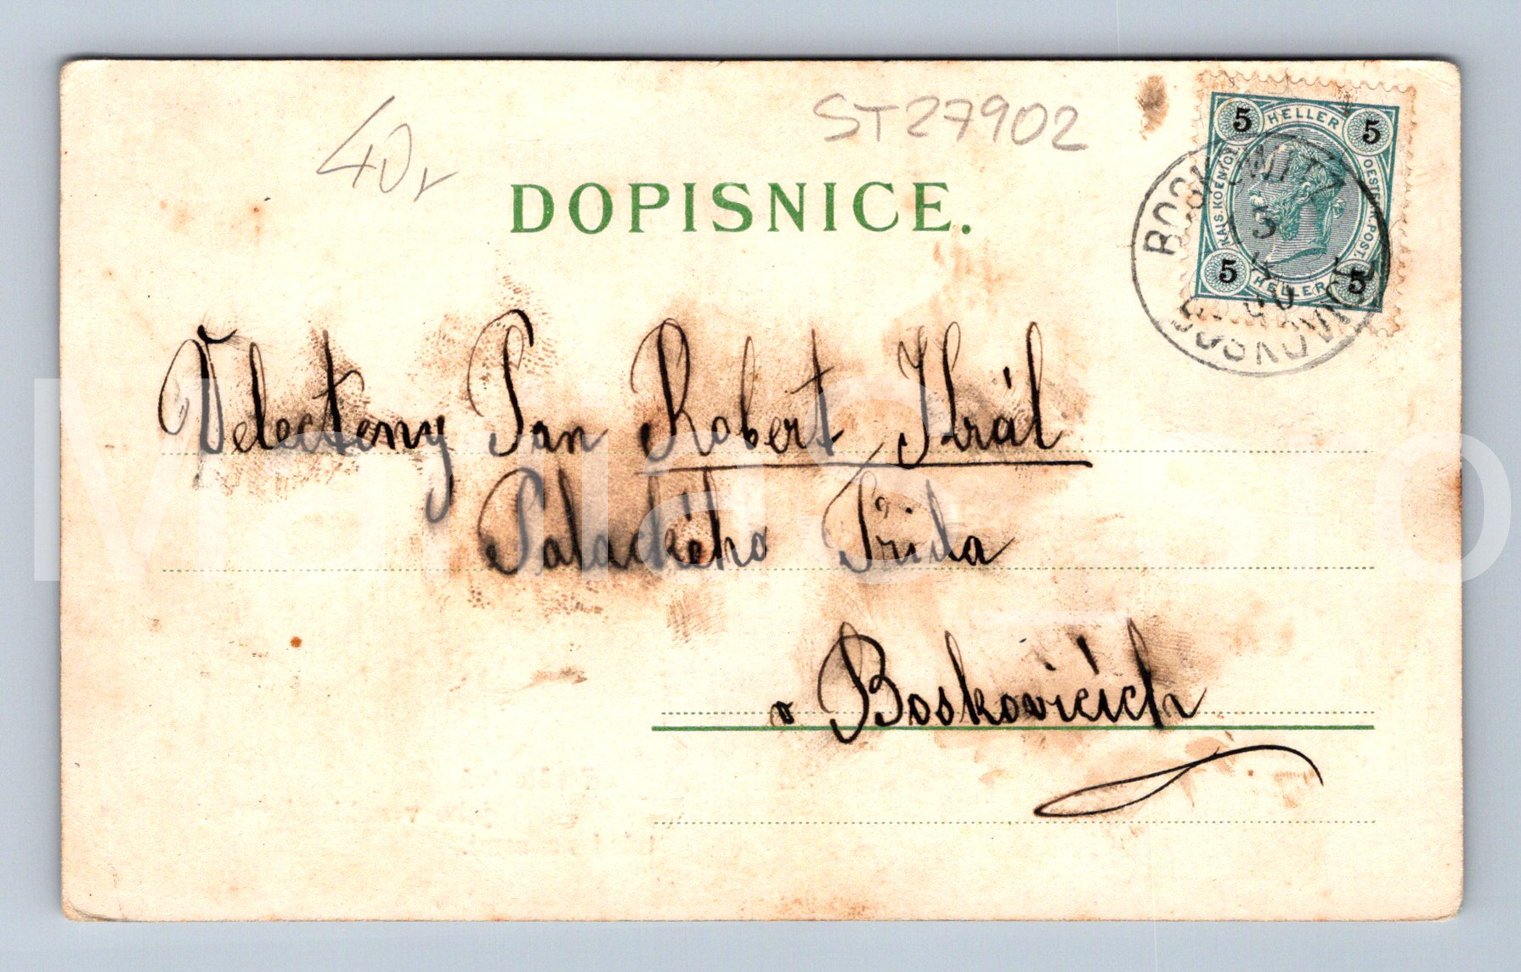 40,-
ST27902
DOPISNICE.
5 HELLER 5
KAIS. KOENIGL. OESTERR. POST.
5 HELLER 5
BOSKOWITZ
3
BOSKOVICE
Velectěný Pan Robert Král
Palackého Třida
v Boskovicích